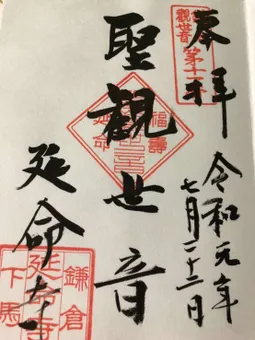 奉拝
令和元年
七月二十二日
聖観世音
延命寺
観世音
第十一
福壽
延命
鎌倉
延命寺
下馬